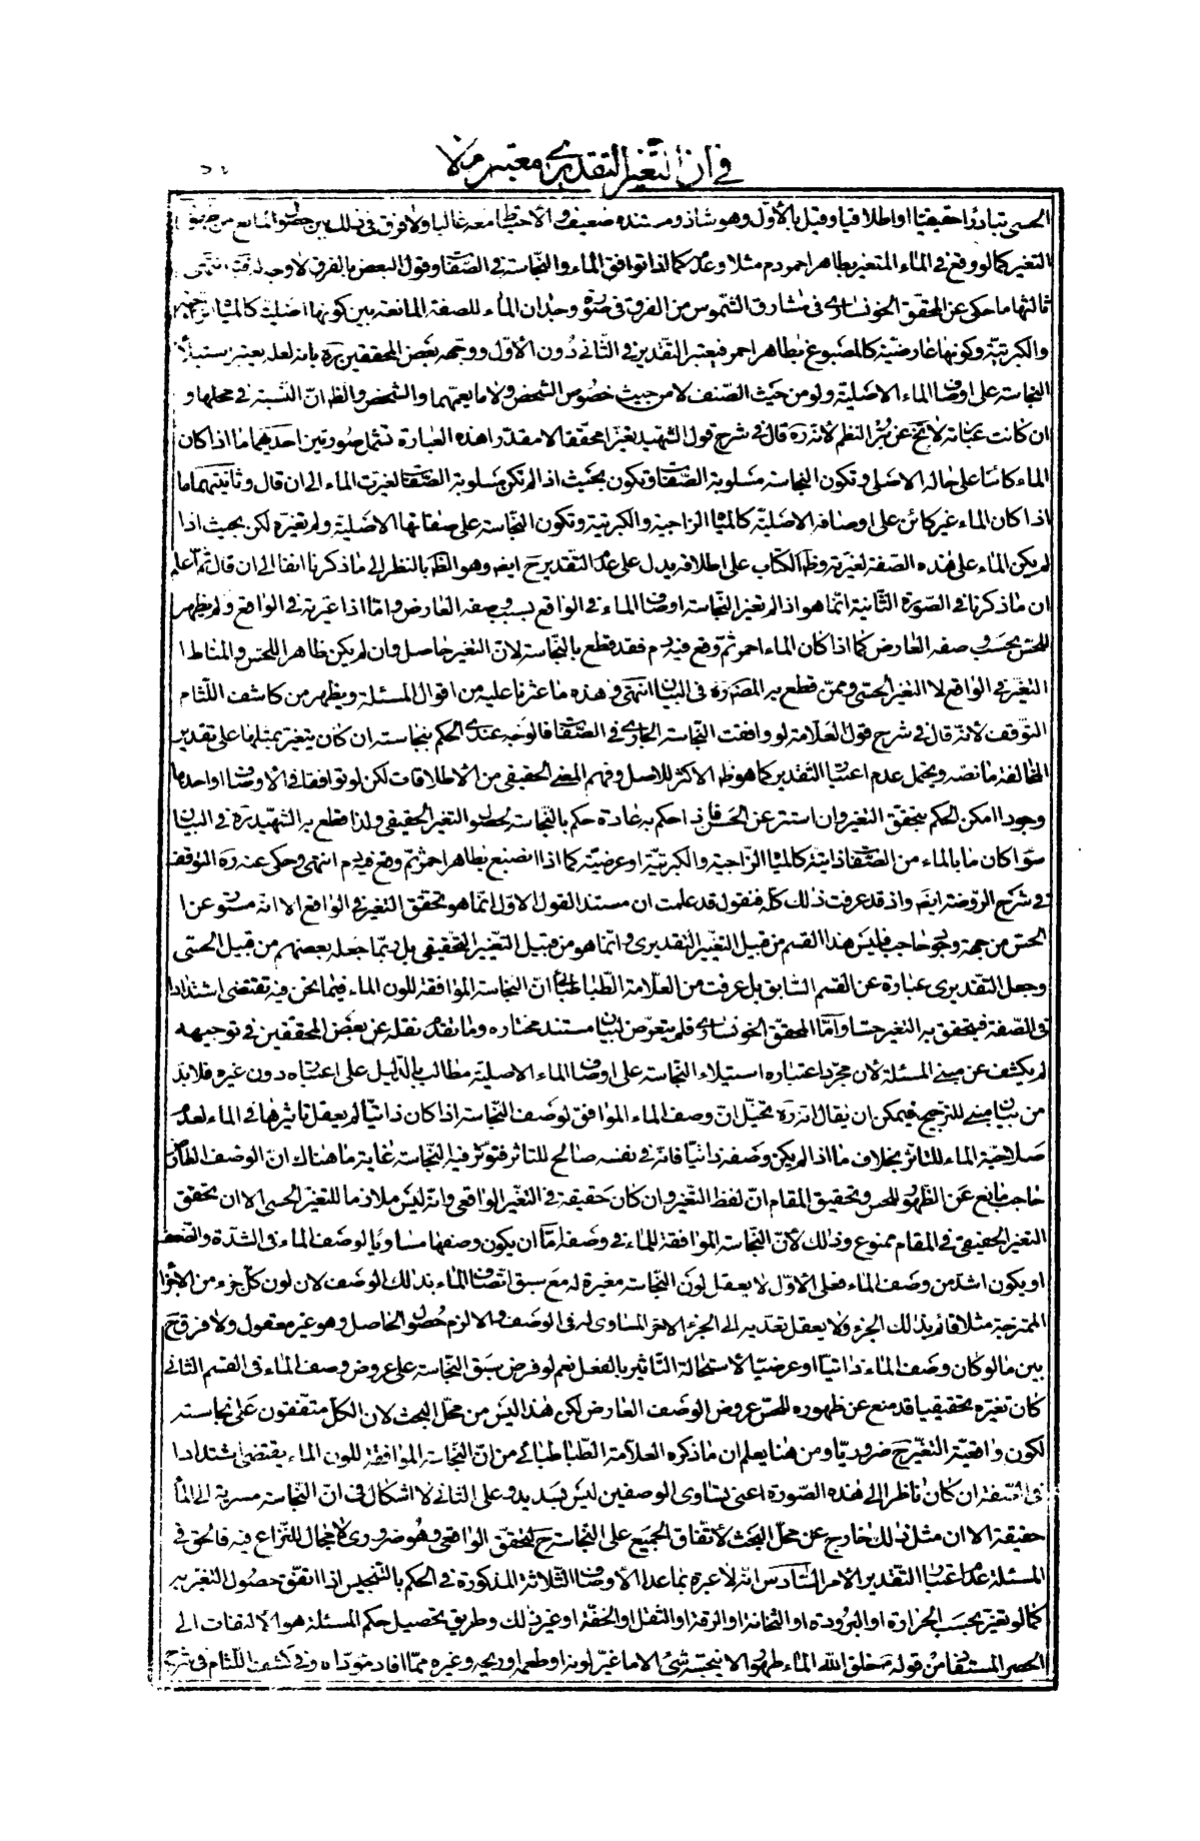 في ان التغير التقديري معتبر ام لا
الحسي تبادرا حقيقيا او اطلاقيا وقيل بالأوّل وهو شاذ ومستنده ضعيف والأحتياط معه غالبا ولا فرق في ذلك بين حصول المانع من
التغير كما لو وقع في الماء المتغير بطاهر احمر دم مثلا وعدمه كما اذا توافق الماء والنجاسة في الصفات وقول البعض بالفرق لا وجه له انتهى
ثالثها ما حكى عن المحقق الخونساري في مشارق الشموس من الفرق في صورة وجدان الماء للصفة المانعة بين كونها اصلية كالمياه الزاجية
والكبريتيّة وكونها عارضيّة كالمصبوغ بطاهر احمر فيعتبر التقدير في الثاني دون الأوّل ووجهه بعض المحققين ره بانه لعله يعتبر استيلاء
النجاسة على اوصاف الماء الاصليّة ولو من حيث الصّنف لا من حيث خصوص الشخص ولا ما يعمهما والشخص والظ ان النسبة في محلها و
ان كانت عبارته لا تخ عن النظم لانه ره قال في شرح قول الشهيد تغيرا محققا لا مقدرا هذه العبارة تشمل صورتين احدهما ما اذا كان
الماء كائنا على حاله الاصلي وتكون النجاسة مسلوبة الصّفات وتكون بحيث اذا لم تكن مسلوبة الصّفات لغيرت الماء الى ان قال وثانيتهما ما
اذا كان الماء غير كائن على اوصافه الاصليّة كالمياه الزاجية والكبريتية وتكون النجاسة على صفاتها الاصليّة ولم تغيره لكن بحيث اذا
لم يكن الماء على هذه الصّفة لغيرته وظ الكتاب على اطلاقه يدل على عدم التقدير ح ايض وهو الظ بالنظر الى ما ذكرنا انفا الى ان قال ثم اعلم
ان ما ذكرنا في الصّورة الثانية انما هو اذا لم تغير النجاسة اوصاف الماء في الواقع بسبب صفة العارض واما اذا غيرته في الواقع ولم يظهر
للحسّ بحسب صفة العارض كما اذا كان الماء احمر ثم وقع فيه دم فقد قطع بالنّجاسة لان التغير حاصل وان لم يكن ظاهر اللحس والمناط
التغيّر في الواقع لا التغير الحسّي وممن قطع به المصره في البيان انتهى فهذه ما عثرنا عليه من اقوال المسئلة ويظهر من كاشف اللّثام
التوقف لأنه قال في شرح قول العلامة لو وافقت النجاسة الجاري في الصّفات فالوجه عندي الحكم بنجاسته ان كان يتغير بمثلها على تقدير
المخالفة ما نصه ويحتمل عدم اعتبار التقدير كما هو ظ الاكثر للاصل وفهم المعنى الحقيقي من الاطلاقات لكن لو توافقا في الأوصاف او احدها
وجودا امكن الحكم بتحقق التغير وان استتر عن الحس فان احكم به عادة حكم بالنّجاسة لحصول التغير الحقيقي ولذا قطع به الشهيد ره في البيان
سواء كان ما بالماء من الصّفات ذاتية كالمياه الزّاجية والكبريتيّة او عرضيّة كما اذا انصبغ بطاهر احمر ثم وقع فيه دم انتهى وحكى عنه ره التوقف
في شرح الرّوضة ايضا واذ قد عرفت ذلك كلّه فنقول قد علمت ان مستند القول الاول انما هو تحقق التغير في الواقع الا انه مستور عن
الحسّ من جهة وجود حاجب فليس هذا القسم من قبيل التغيّر التقديري وانما هو من قبيل التغيّر الحقيقي بل ربما جعله بعضهم من قبيل الحسّي
وجعل التقديري عبارة عن القسم السّابق بل عرفت من العلّامة الطّباطبائي انّ النجاسة الموافقة للون الماء فيما نحن فيه تقتضي اشتدادا
في الصّفة فيتحقق به التغير حسّا وامّا المحقق الخونساري فلم يتعرّض لبيان مستند مختاره وما تقدّم نقله عن بعض المحققين في توجيهه
لم يكشف عن مبنى المسئلة لأن مجرّد اعتباره استيلاء النجاسة على اوصاف الماء الاصليّة مطالب بالدّليل على اعتباره دون غيره فلا بدّ
من بيان مبنى للترجيح فيمكن ان يقال انه ره تخيّل انّ وصف الماء الموافق لوصف النّجاسة اذا كان ذاتيّا لم يعقل تاثيرها في الماء لعدم
صلاحيّة الماء للتاثّر بخلاف ما اذا لم يكن وصفه ذاتيّا فانّه في نفسه صالح للتاثر فتؤثر فيه النّجاسة غاية ما هناك انّ الوصف العارض
حاجب مانع عن الظّهور للحس وتحقيق المقام انّ لفظ التغيّر وان كان حقيقة في التغيّر الواقعي وانّه ليس ملازما للتغيّر الحسي الا ان تحقق
التغير الحقيقيّ في المقام ممنوع وذلك لأنّ النّجاسة الموافقة للماء في وصفه امّا ان يكون وصفها مساويا لوصف الماء في الشدّة والضّعف
او يكون اشد من وصف الماء فعلى الأوّل لا يعقل كون النّجاسة مغيرة له مع سبق اتّصاف الماء بذلك الوصف لان لون كلّ جزء من الأجزاء
الممتزجة مثلا قائم بذلك الجزء ولا يعقل تعدّيه الى الجزء الاخر المساوي له في الوصف والا لزم حصول الحاصل وهو غير معقول ولا فرق ح
بين ما لو كان وصف الماء ذاتيّا او عرضيّا لأستحالة التّاثير بالفعل نعم لو فرض سبق النّجاسة على عروض وصف الماء في القسم الثاني
كان تغيّره تحقيقيا قد منع عن ظهوره للحسّ عروض الوصف العارض لكن هذا ليس من محلّ البحث لان الكلّ متّفقون على نجاسته
لكون واقعيّة التغيّر ح ضروريّا ومن هنا يعلم ان ما ذكره العلّامة الطّباطبائي من انّ النّجاسة الموافقة للون الماء يقتضي اشتدادا
في الصّفة ان كان ناظرا الى هذه الصّورة اعني تساوي الوصفين ليس بسديد وعلى الثاني لا اشكال في انّ النّجاسة مسرية الى الماء
حقيقة الا ان مثل ذلك خارج عن محلّ البحث لأتّفاق الجميع على النّجاسة ح لتحقق الواقعي وهو ضروري لا مجال للنّزاع فيه فالحق في
المسئلة عدم اعتبار التقدير الامر السّادس انّه لا عبرة بما عدا الأوصاف الثّلاثة المذكورة في الحكم بالتنجيس اذا اتفق حصول التغير به
كما لو تغيّر بحسب الحرارة او البرودة او الثخانة او الرقة او الثقل او الخفّة او غير ذلك وطريق تحصيل حكم المسئلة هو الالتفات الى
الحصر المستفاد من قوله ص خلق الله الماء طهورا لا ينجّسه شئ الا ما غيّر لونه او طعمه او ريحه وغيره ممّا افاد مؤداه وفي كشف اللّثام في شرح